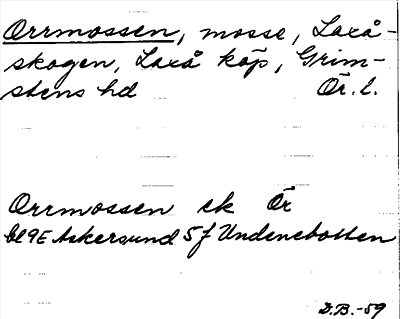 Orrmossen, mosse, Laxå-
skogen, Laxå köp, Grim-
stens hd Ör. l.
Orrmossen ek Ör
bl 9E Askersund 5 f Undenebotten
D.B.-59